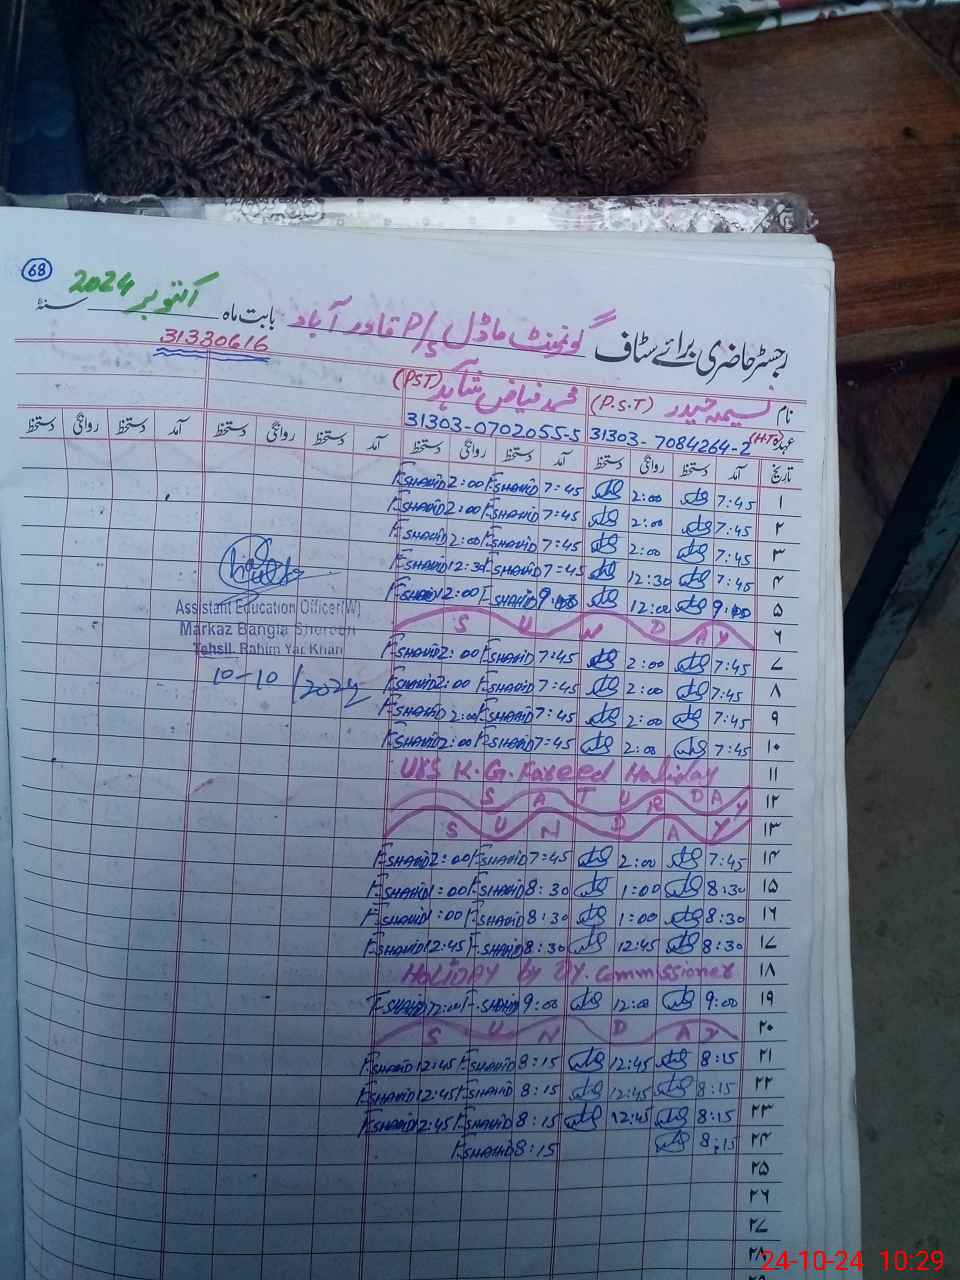 68
رجسٹر حاضری برائے سٹاف گورنمنٹ ماڈل P/S قادر آباد بابت ماہ اکتوبر 2024 سنہ
31330616
نام نسیمہ حیدر (P.S.T) محمد فیاض شاہد (PST)
عہدہ (H.T) 31303-7084264-2 31303-0702055-5
تاریخ آمد دستخط روانگی دستخط آمد دستخط روانگی دستخط آمد دستخط روانگی دستخط آمد دستخط روانگی دستخط
۱ 7:45 2:00 7:45 F.SHAHID 2:00 F.SHAHID
۲ 7:45 2:00 7:45 F.SHAHID 2:00 F.SHAHID
۳ 7:45 2:00 7:45 F.SHAHID 2:00 F.SHAHID
۴ 7:45 12:30 7:45 F.SHAHID 12:30 F.SHAHID
۵ 9:00 12:00 9:00 F.SHAHID 12:00 F.SHAHID
۶ SUNDAY
۷ 7:45 2:00 7:45 F.SHAHID 2:00 F.SHAHID
۸ 7:45 2:00 7:45 F.SHAHID 2:00 F.SHAHID
۹ 7:45 2:00 7:45 F.SHAHID 2:00 F.SHAHID
۱۰ 7:45 2:00 7:45 F.SHAHID 2:00 F.SHAHID
۱۱ URS K.G.Fareed Holiday
۱۲ SATURDAY
۱۳ SUNDAY
۱۴ 7:45 2:00 7:45 F.SHAHID 2:00 F.SHAHID
۱۵ 8:30 1:00 8:30 F.SHAHID 1:00 F.SHAHID
۱۶ 8:30 1:00 8:30 F.SHAHID 1:00 F.SHAHID
۱۷ 8:30 12:45 8:30 F.SHAHID 12:45 F.SHAHID
۱۸ HOLIDAY by DY. Commissioner
۱۹ 9:00 12:00 9:00 F.SHAHID 12:00 F.SHAHID
۲۰ SUNDAY
۲۱ 8:15 12:45 8:15 F.SHAHID 12:45 F.SHAHID
۲۲ 8:15 12:45 8:15 F.SHAHID 12:45 F.SHAHID
۲۳ 8:15 12:45 8:15 F.SHAHID 12:45 F.SHAHID
۲۴ 8:15 8:15 F.SHAHID
۲۵
۲۶
۲۷
۲۸
Assistant Education Officer(W)
Markaz Bangla Shereen
Tehsil. Rahim Yar Khan
10-10/2024
24-10-24 10:29